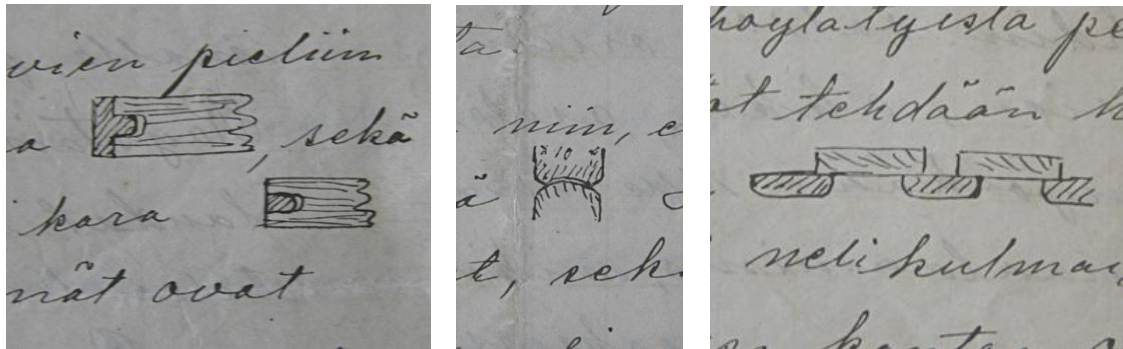 vien pieliin
a , sekä
kara
nät ovat
ta.
nim, e
x 10 x
ä
t, sek
höylätyistä pe
ät tehdään k
nelikulmai